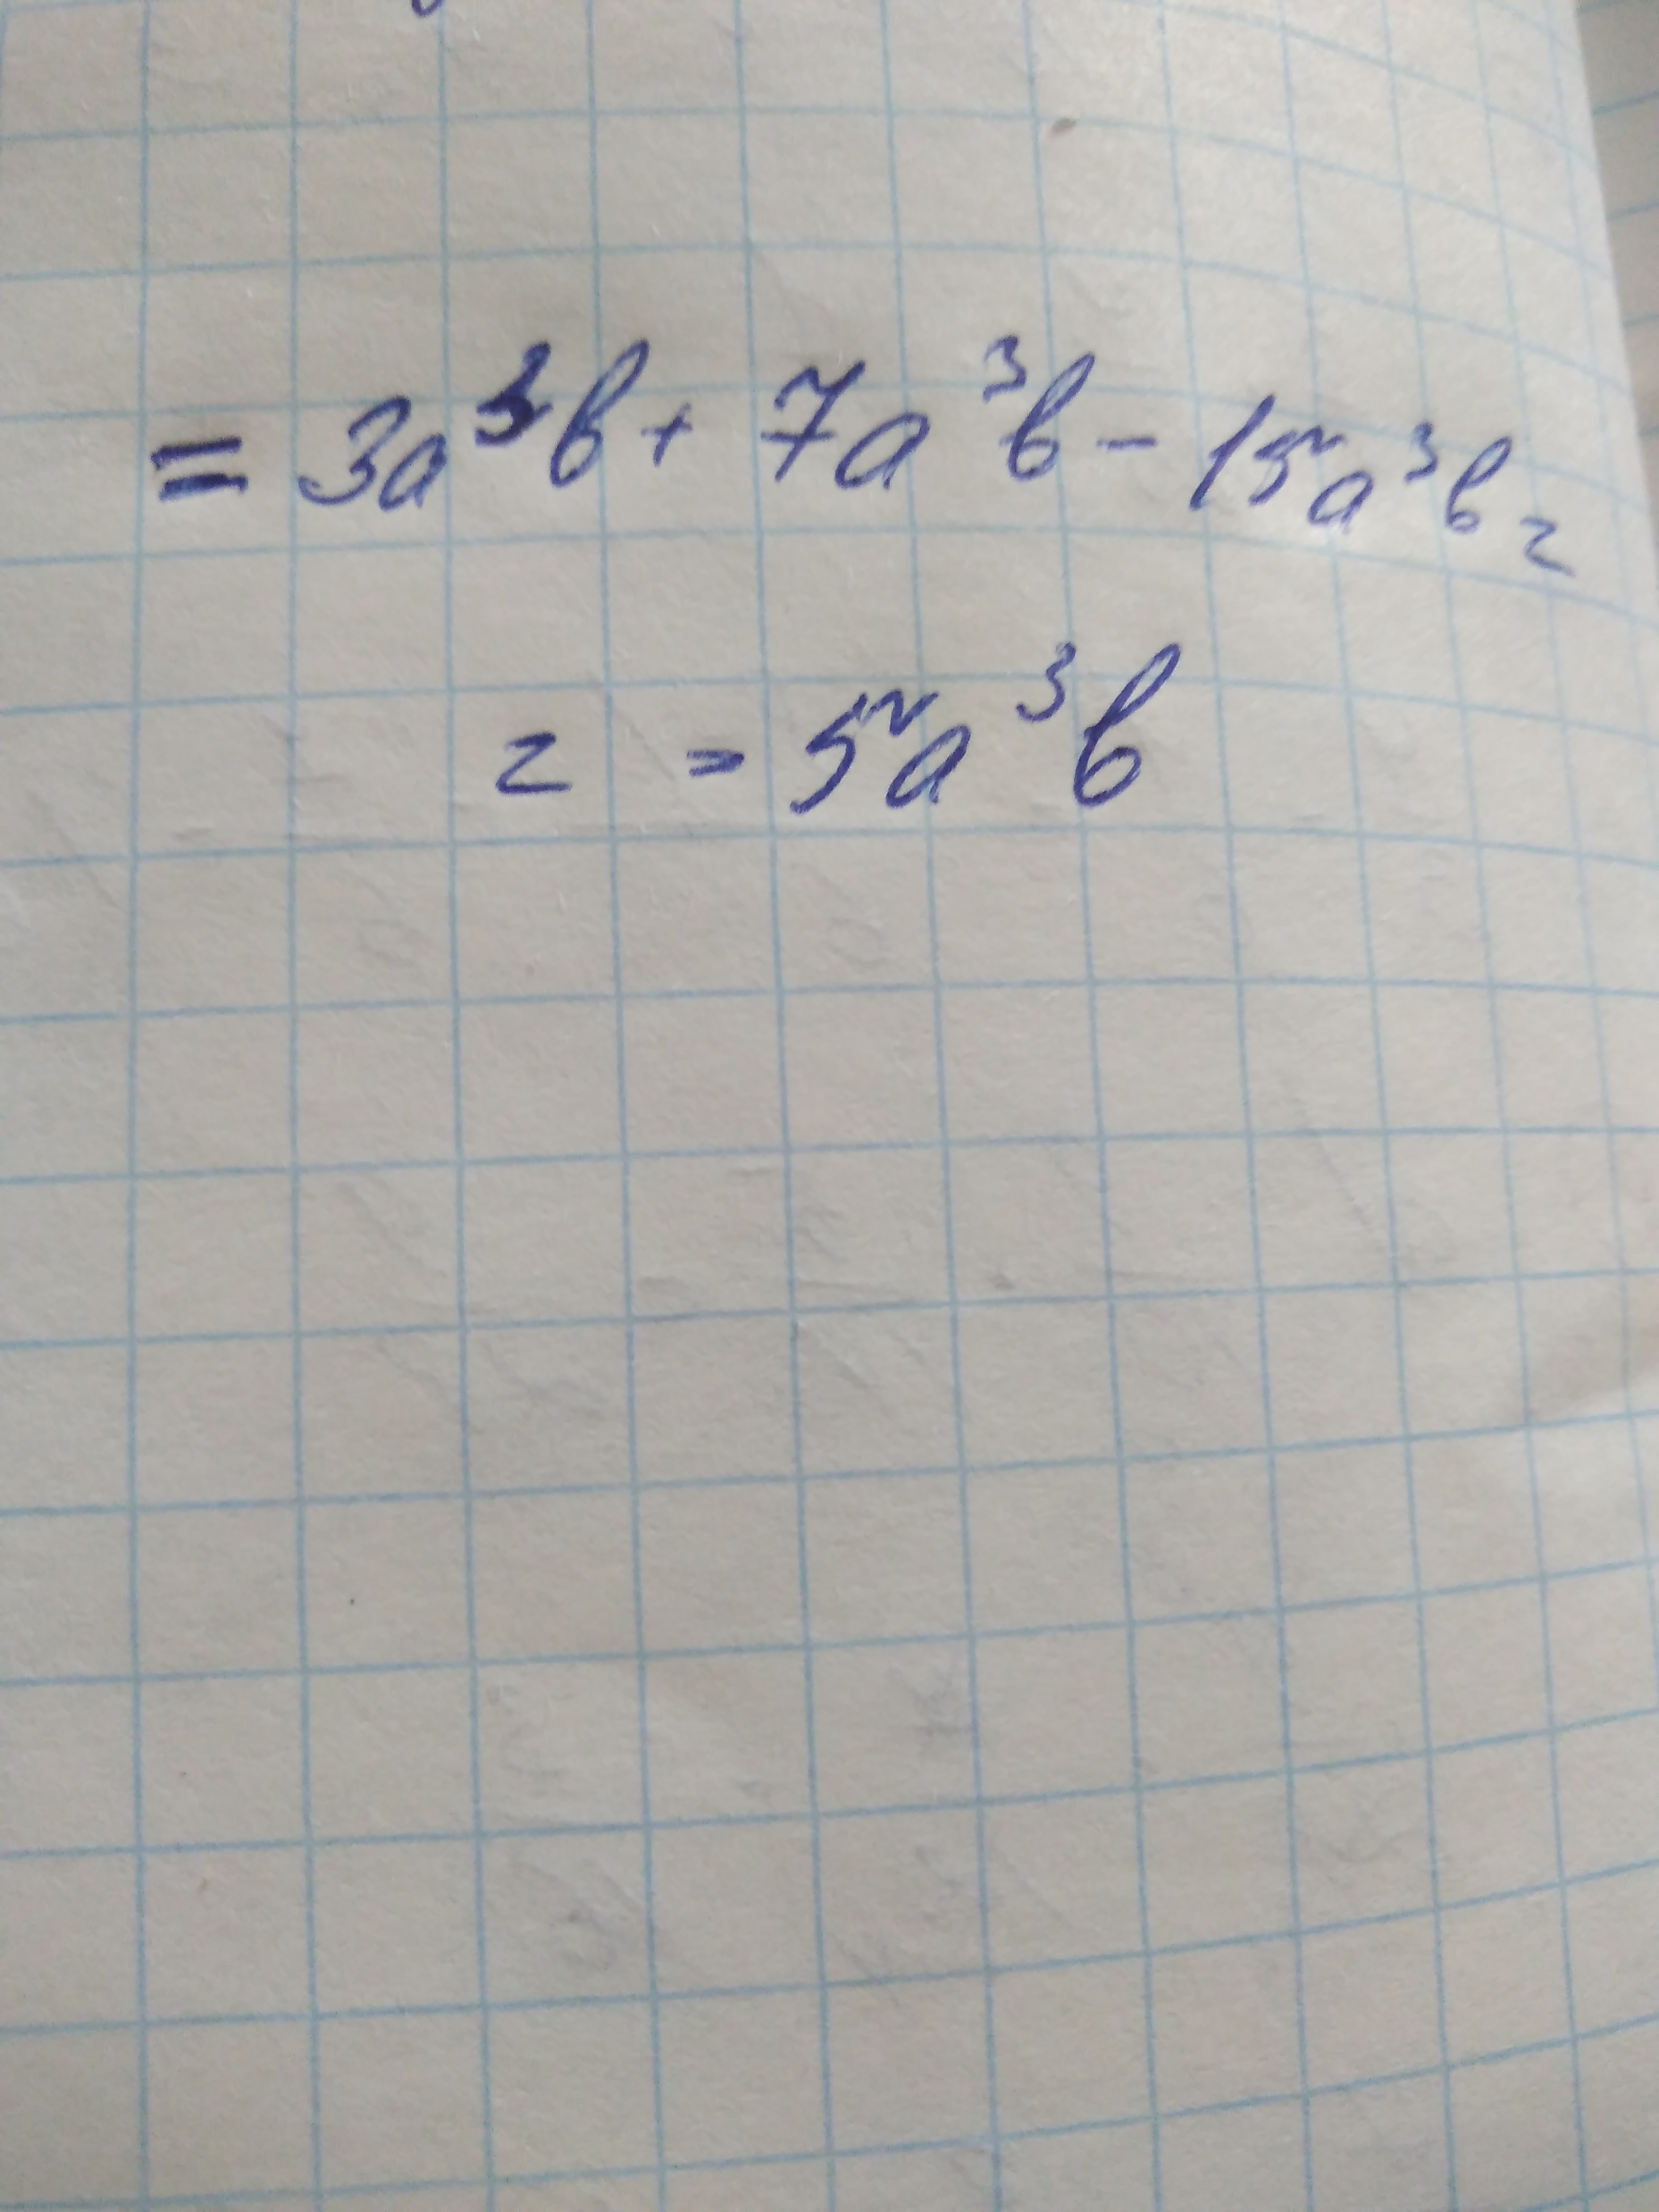 = 3a³b + 7a³b - 15a³b =
= -5a³b